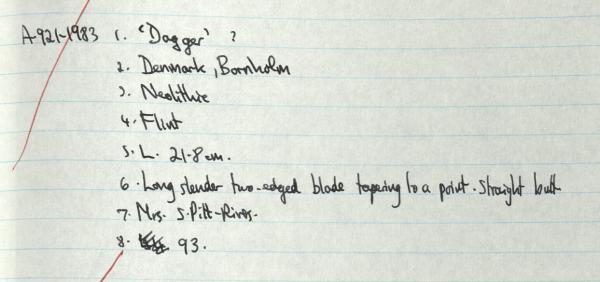 A-921-1983 1. 'Dagger' ?
2. Denmark, Bornholm
3. Neolithic
4. Flint
5. L. 21.8 cm.
6. Long slender two-edged blade tapering to a point. Straight butt
7. Mrs. S. Pitt-Rivers.
8. 93.